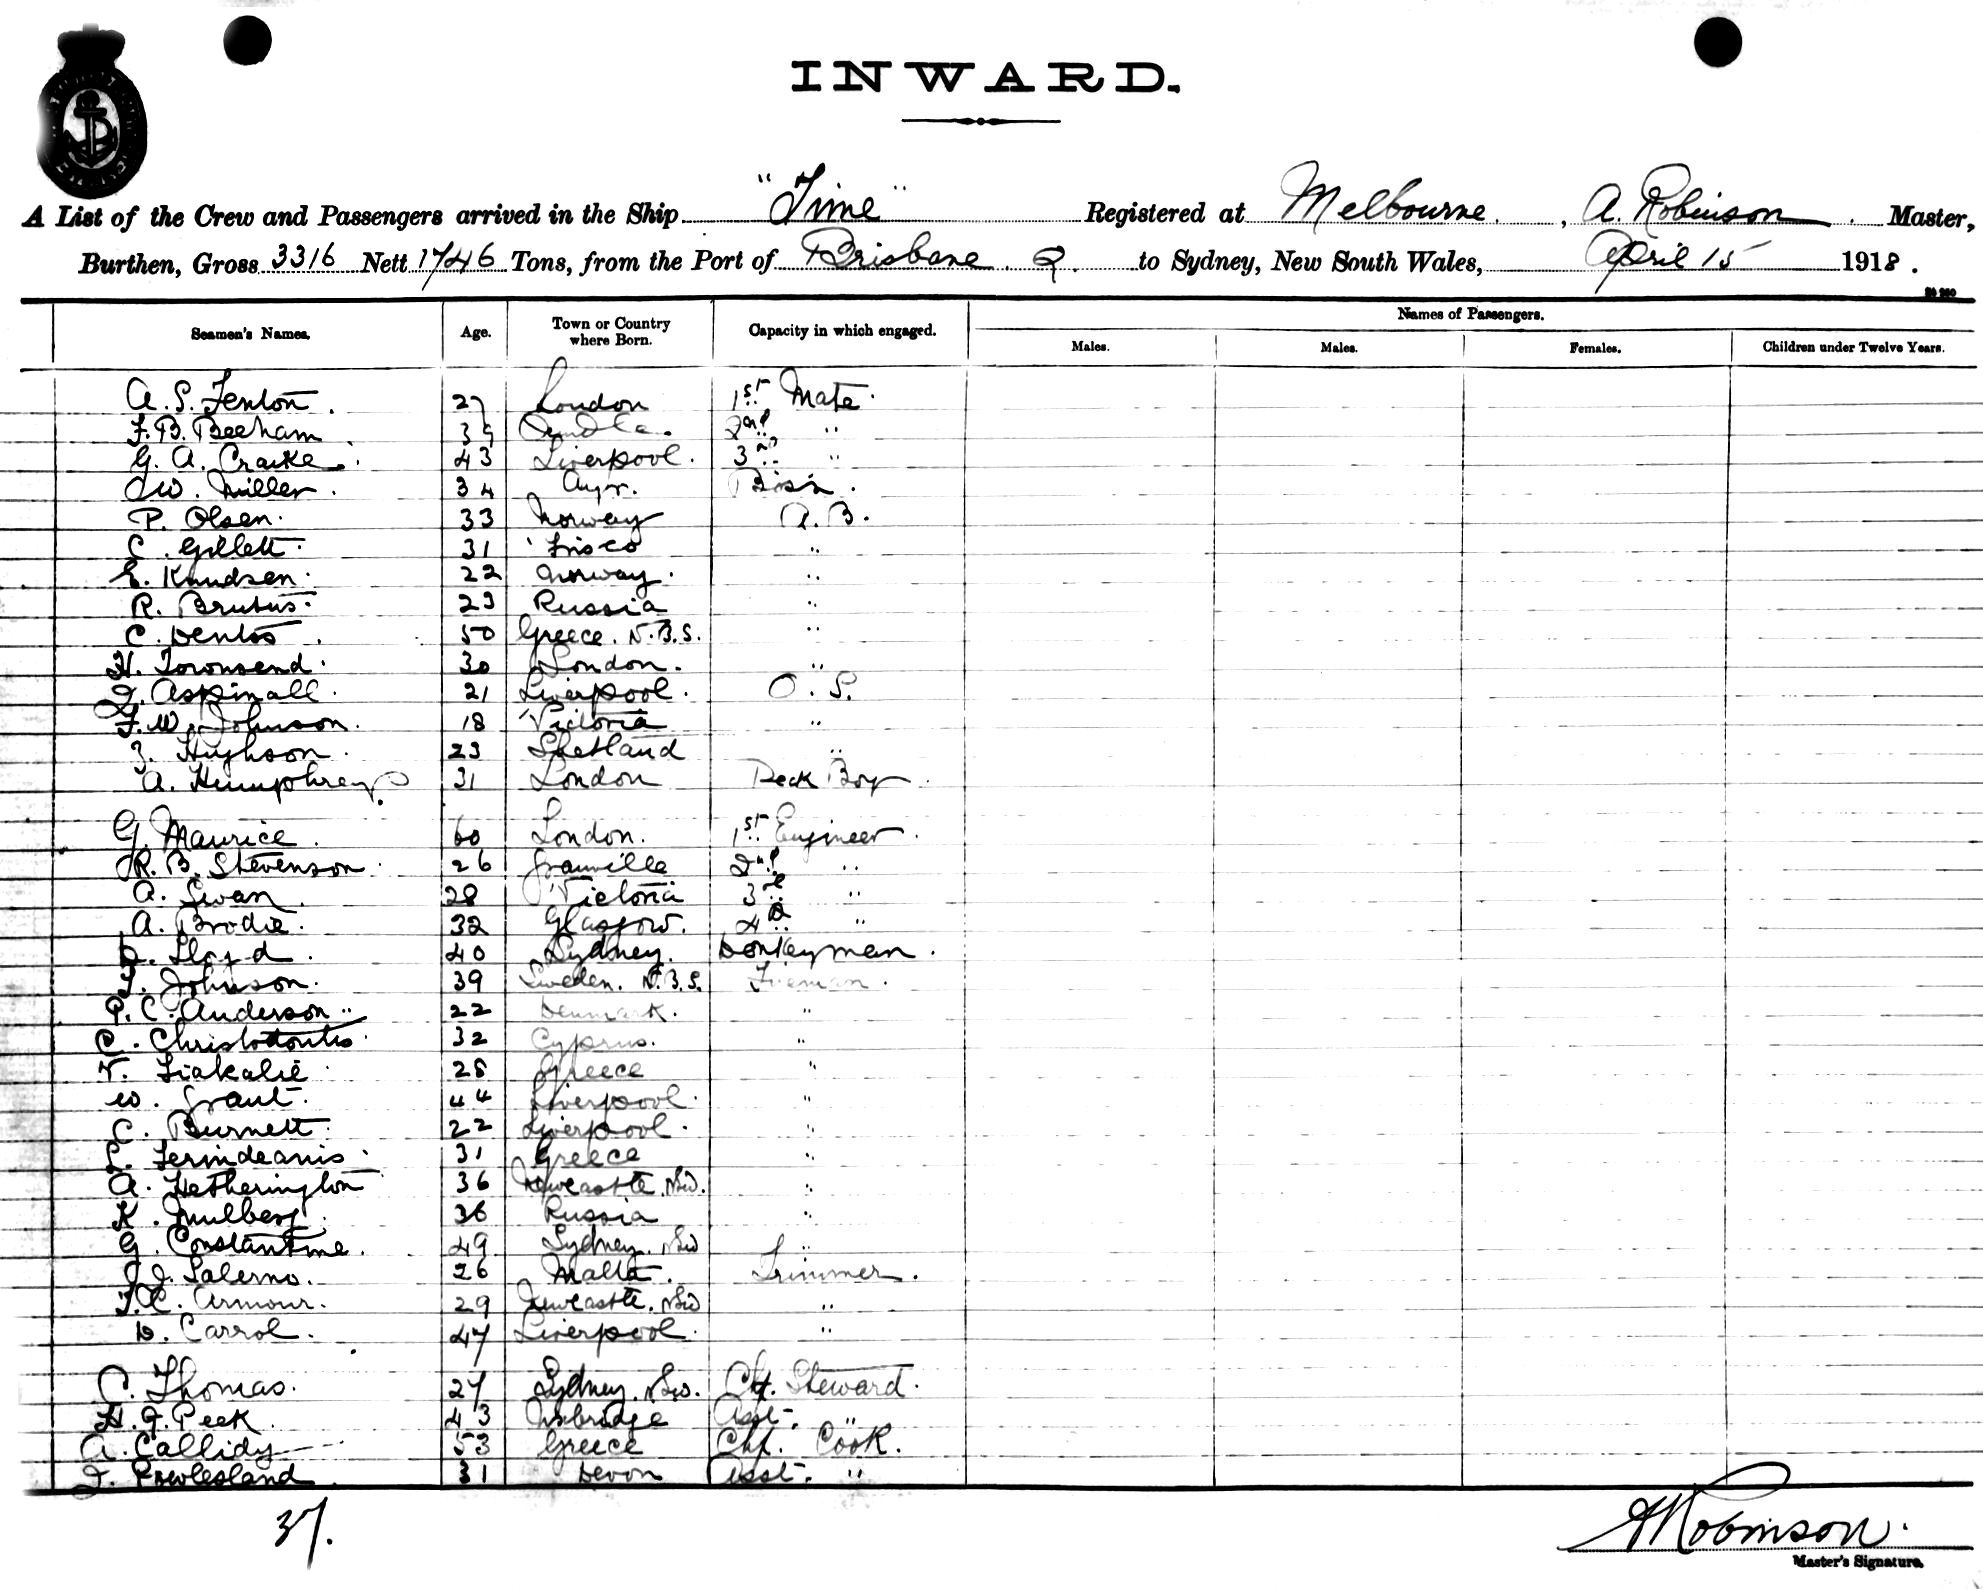 INWARD.
A List of the Crew and Passengers arrived in the Ship "Time" Registered at Melbourne, A. Robinson Master,
Burthen, Gross 3316 Nett 1746 Tons, from the Port of Brisbane Q. to Sydney, New South Wales, April 15 1918.
Names of Passengers.
Seamen's Names. Age. Town or Country where Born. Capacity in which engaged. Males. Males. Females. Children under Twelve Years.
A. S. Fenton. 27 London 1st Mate.
F. B. Beeham. 39 2nd "
G. A. Craike. 43 Liverpool. 3rd "
W. Miller. 34 Ayr. Bosn.
P. Olsen. 33 Norway A. B.
C. Gillett. 31 Frisco "
E. Knudsen. 22 Norway. "
R. Brutus. 23 Russia "
C. Dentos. 50 Greece. N.B.S. "
H. Townsend. 30 London. "
J. Aspinall. 21 Liverpool. O. S.
F. W. Johnson. 18 Victoria "
J. Hughson. 23 Shetland "
A. Humphreys. 31 London Deck Boy.
G. Maurice. 60 London. 1st Engineer.
R. B. Stevenson. 26 Granville 2nd "
A. Swan. 28 Victoria 3rd "
A. Brodie. 32 Glasgow. 4th "
D. Lloyd. 40 Sydney. Donkeyman.
J. Johnson. 39 Sweden. N.B.S. Fireman.
P. C. Anderson. 22 Denmark. "
C. 32 Cyprus. "
28 Greece "
W. Grant. 44 Liverpool. "
C. Burnett. 22 Liverpool. "
31 Greece "
A. Hetherington 36 Newcastle. NSW. "
K. Mulberg. 36 Russia "
G. Constantine. 49 Sydney. NSW "
J. Salerno. 26 Malta. Trimmer.
Armour. 29 Newcastle. NSW "
D. Carrol. 47 Liverpool. "
C. Thomas. 27 Sydney. NSW. Chf. Steward.
H. J. Peek. 43 Uxbridge Asst. "
A. Callidy 53 Greece Chf. Cook.
J. Powlesland. 31 Devon Asst. "
37.
A Robinson.
Master's Signature.